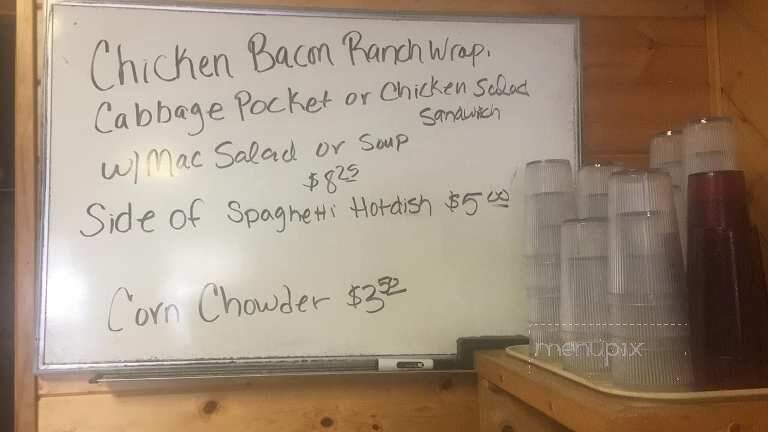 Chicken Bacon Ranch Wrap.
Cabbage Pocket or Chicken Salad
Sandwich
w/ Mac Salad or Soup
$8 25
Side of Spaghetti Hotdish $5 00
Corn Chowder $3 50
menupix